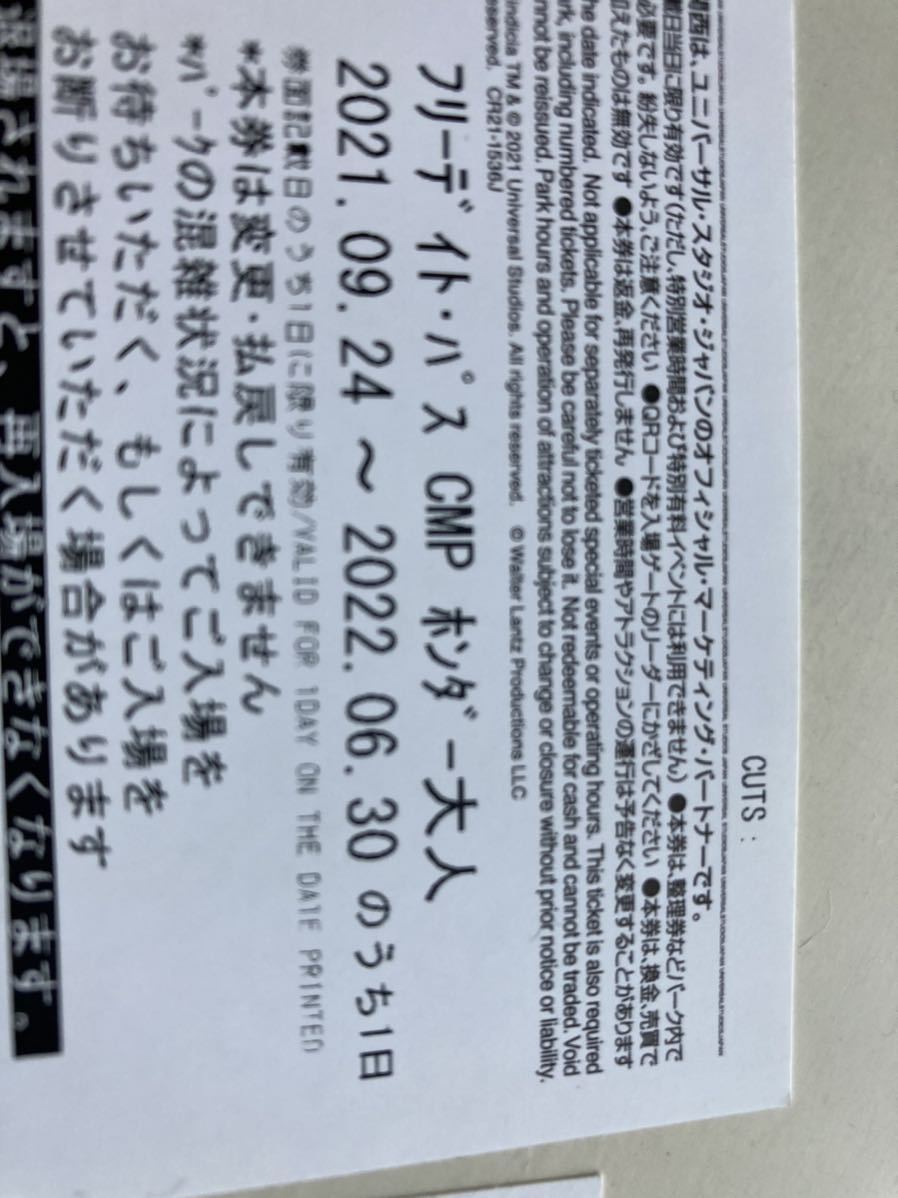 CUTS :
は、ユニバーサル・スタジオ・ジャパンのオフィシャル・マーケティング・パートナーです。
日当日に限り有効です(ただし、特別営業時間および特別有料イベントには利用できません) ●本券は、整理券などパーク内で
必要です。紛失しないよう、ご注意ください ●QRコードを入場ゲートのリーダーにかざしてください ●本券は、換金、売買で
えたものは無効です ●本券は返金、再発行しません ●営業時間やアトラクションの運行は予告なく変更することがあります
he date indicated. Not applicable for separately ticketed special events or operating hours. This ticket is also required
rk, including numbered tickets. Please be careful not to lose it. Not redeemable for cash and cannot be traded. Void
nnot be reissued. Park hours and operation of attractions subject to change or closure without prior notice or liability.
indicia TM & © 2021 Universal Studios. All rights reserved. © Walter Lantz Productions LLC
eserved. CR21-1536J
フリーデイト・パス CMP ホンダ－大人
2021. 09. 24 ～ 2022. 06. 30 のうち1日
券面記載日のうち1日に限り有効/VALID FOR 1DAY ON THE DATE PRINTED
*本券は変更・払戻しできません
*パークの混雑状況によってご入場を
お待ちいただく、もしくはご入場を
お断りさせていただく場合があります
退場されますと、再入場ができなくなります。